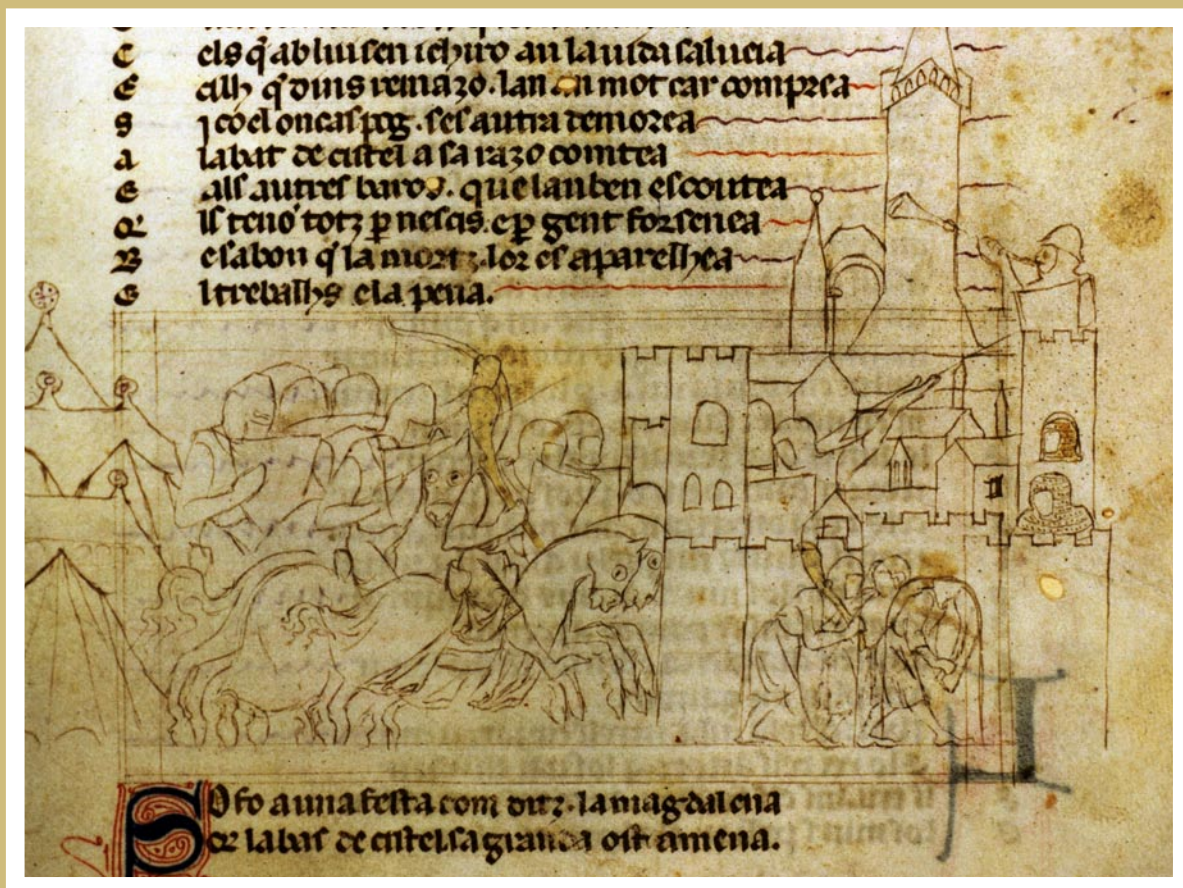 C els q̃ ab lui sen ichiro an la uida saluea
E cilh q̃ dins remazo . lan an mot car comprea
S i co el oncas pog . ses autra demorea
A labat de cistel a sa razo comtea
E als autres baros . que lan ben escoutea
Q ils teno totz ꝑ nescis . e ꝑ gent forsenea
B e sabon q̃ la mortz . lor es aparelhea
E l trebalhs e la pena.
So fo a una festa com ditz . la magdalena
labas de cistel sa granda ost amena.